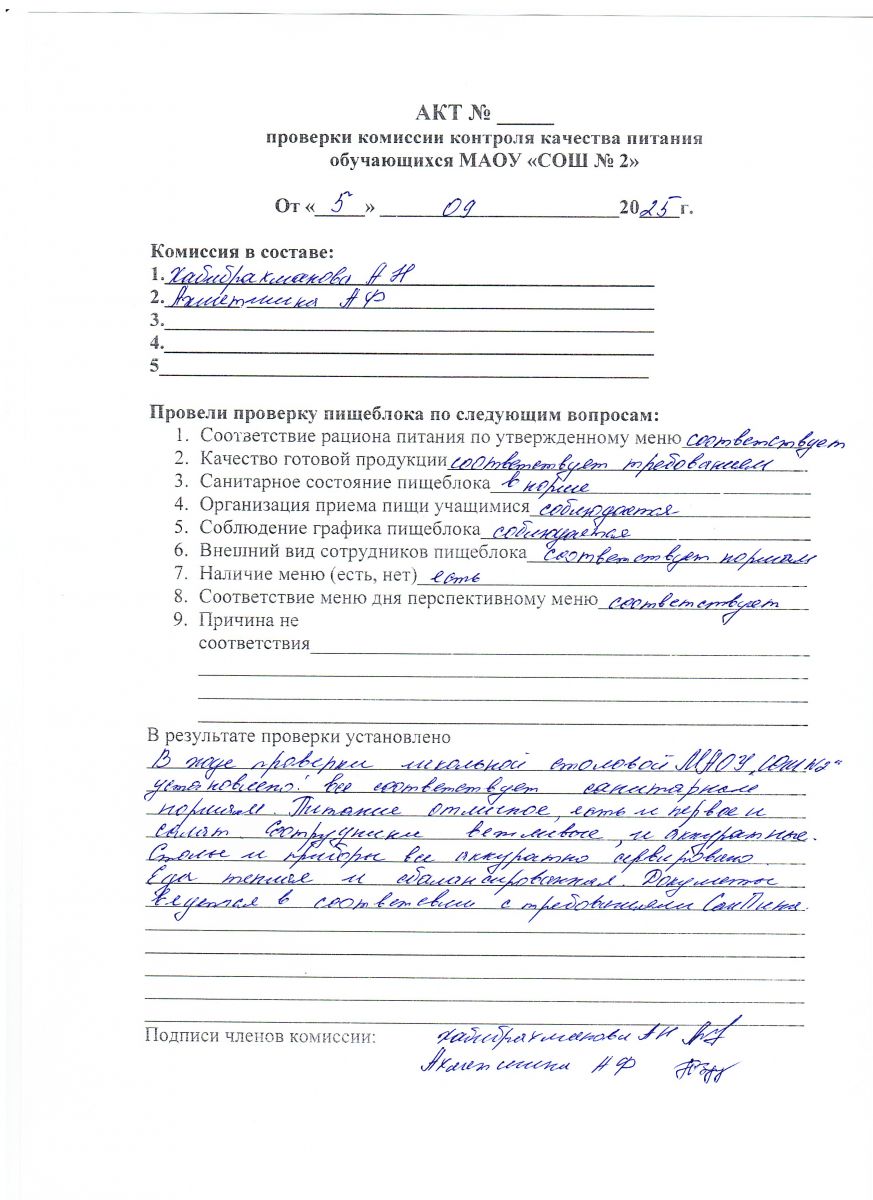 АКТ № _____
проверки комиссии контроля качества питания
обучающихся МАОУ «СОШ № 2»
От « 5 » 09 2025 г.
Комиссия в составе:
1. Хабибрахманова А Н
2. Ахметшина А Ф
3.
4.
5
Провели проверку пищеблока по следующим вопросам:
1. Соответствие рациона питания по утвержденному меню соответствует
2. Качество готовой продукции соответствует требованием
3. Санитарное состояние пищеблока в норме
4. Организация приема пищи учащимися соблюдается
5. Соблюдение графика пищеблока соблюдается
6. Внешний вид сотрудников пищеблока соответствует нормам
7. Наличие меню (есть, нет) есть
8. Соответствие меню дня перспективному меню соответствует
9. Причина не
соответствия
В результате проверки установлено
В ходе проверки школьной столовой МАОУ „СОШ №2“
установлено: все соответствует санитарным
нормам. Питание отличное, есть и первое и
салат. Сотрудники вежливые, и аккуратные.
Столы и приборы все аккуратно сервировано.
Еда теплая и сбалансированная. Документы
ведутся в соответсвии с требованиями СанПина.
Подписи членов комиссии: Хабибрахманова А Н
Ахметшина А Ф